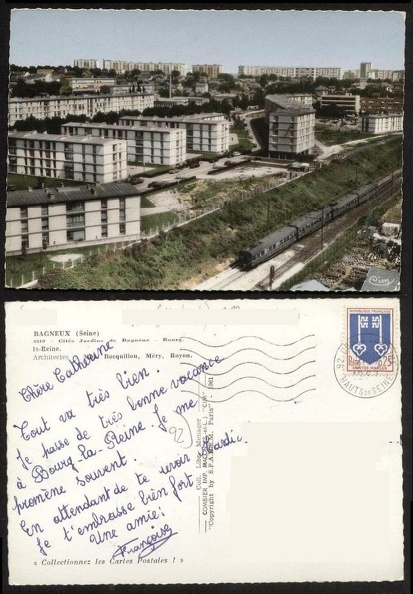 Cim
BAGNEUX (Seine)
4219 - Cités Jardins de Bagneux - Bourg-
la-Reine.
Architectes Bocquillon, Méry, Rayon.
Chère Catherine
Tout va très bien.
Je passe de très bonne vacance
à Bourg-la-Reine. Je me
promène souvent.
En attendant de te voir mardi
Je t'embrasse bien fort
Une amie:
Françoise
92
« Collectionnez les Cartes Postales ! »
COMBIER IMP. MACON
"Copyright by S.P.A.D.E.M. Paris"
1961
REPUBLIQUE FRANÇAISE
0,25
HAUTS DE SEINE